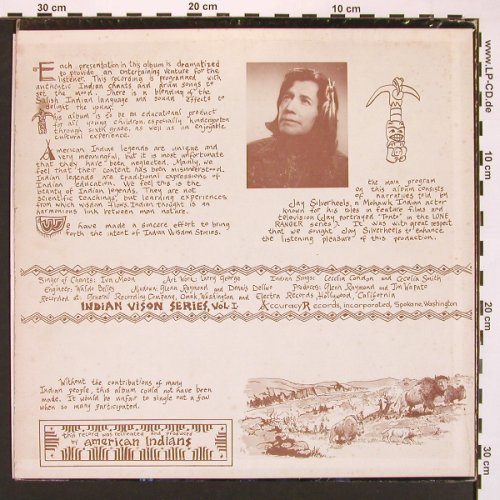 30 cm
20 cm
10 cm
Each presentation in this album is dramatised
to provide an entertaining venture for the
listener. This recording is programmed with
authentic Indian chants and drum songs to
set the mood. There is a blending of the
Salish Indian language and sound effects to
delight the young.
This album is to be an educational product
for all young children, especially kindergarten
through sixth grade, as well as an enjoyable
cultural experience.
American Indian legends are unique and
very meaningful, but it is most unfortunate
that they have been neglected. Mainly, we
feel that their content has been misunderstood.
Indian legends are traditional expressions of
Indian education. We feel this is the
beauty of Indian legends. They are not
scientific teachings, but learning experiences
from which wisdom flows. Indian thought is an
harmonious link between man nature.
We have made a sincere effort to bring
forth the intent of Indian Wisdom Stories.
the main program
on this album consists
of narratives told by
Jay Silverheels, a Mohawk Indian actor
known for his roles in feature films and
television (Jay portrayed "Tonto" in the LONE
RANGER series). It was with great respect
that we sought Jay Silverheels to enhance
the listening pleasure of this production.
Singer of Chants: Iva Moon Art Work: Larry George Indian Songs: Cecelia Condon and Cecelia Smith
Engineer: Waldo Bolles Medium: Glenn Raymond and Dennis DeHur Producer: Glenn Raymond and Jim Wapato
Recorded at: General Recording Company, Omak Washington and Electra Records, Hollywood, California
INDIAN VISON SERIES, Vol. I Accuracy Records, incorporated, Spokane, Washington
Without the contributions of many
Indian people, this album could not have been
made. It would be unfair to single out a few
when so many participated.
this record was recreated and produced
by american indians
www.LP-CD.de
10 cm
20 cm
30 cm